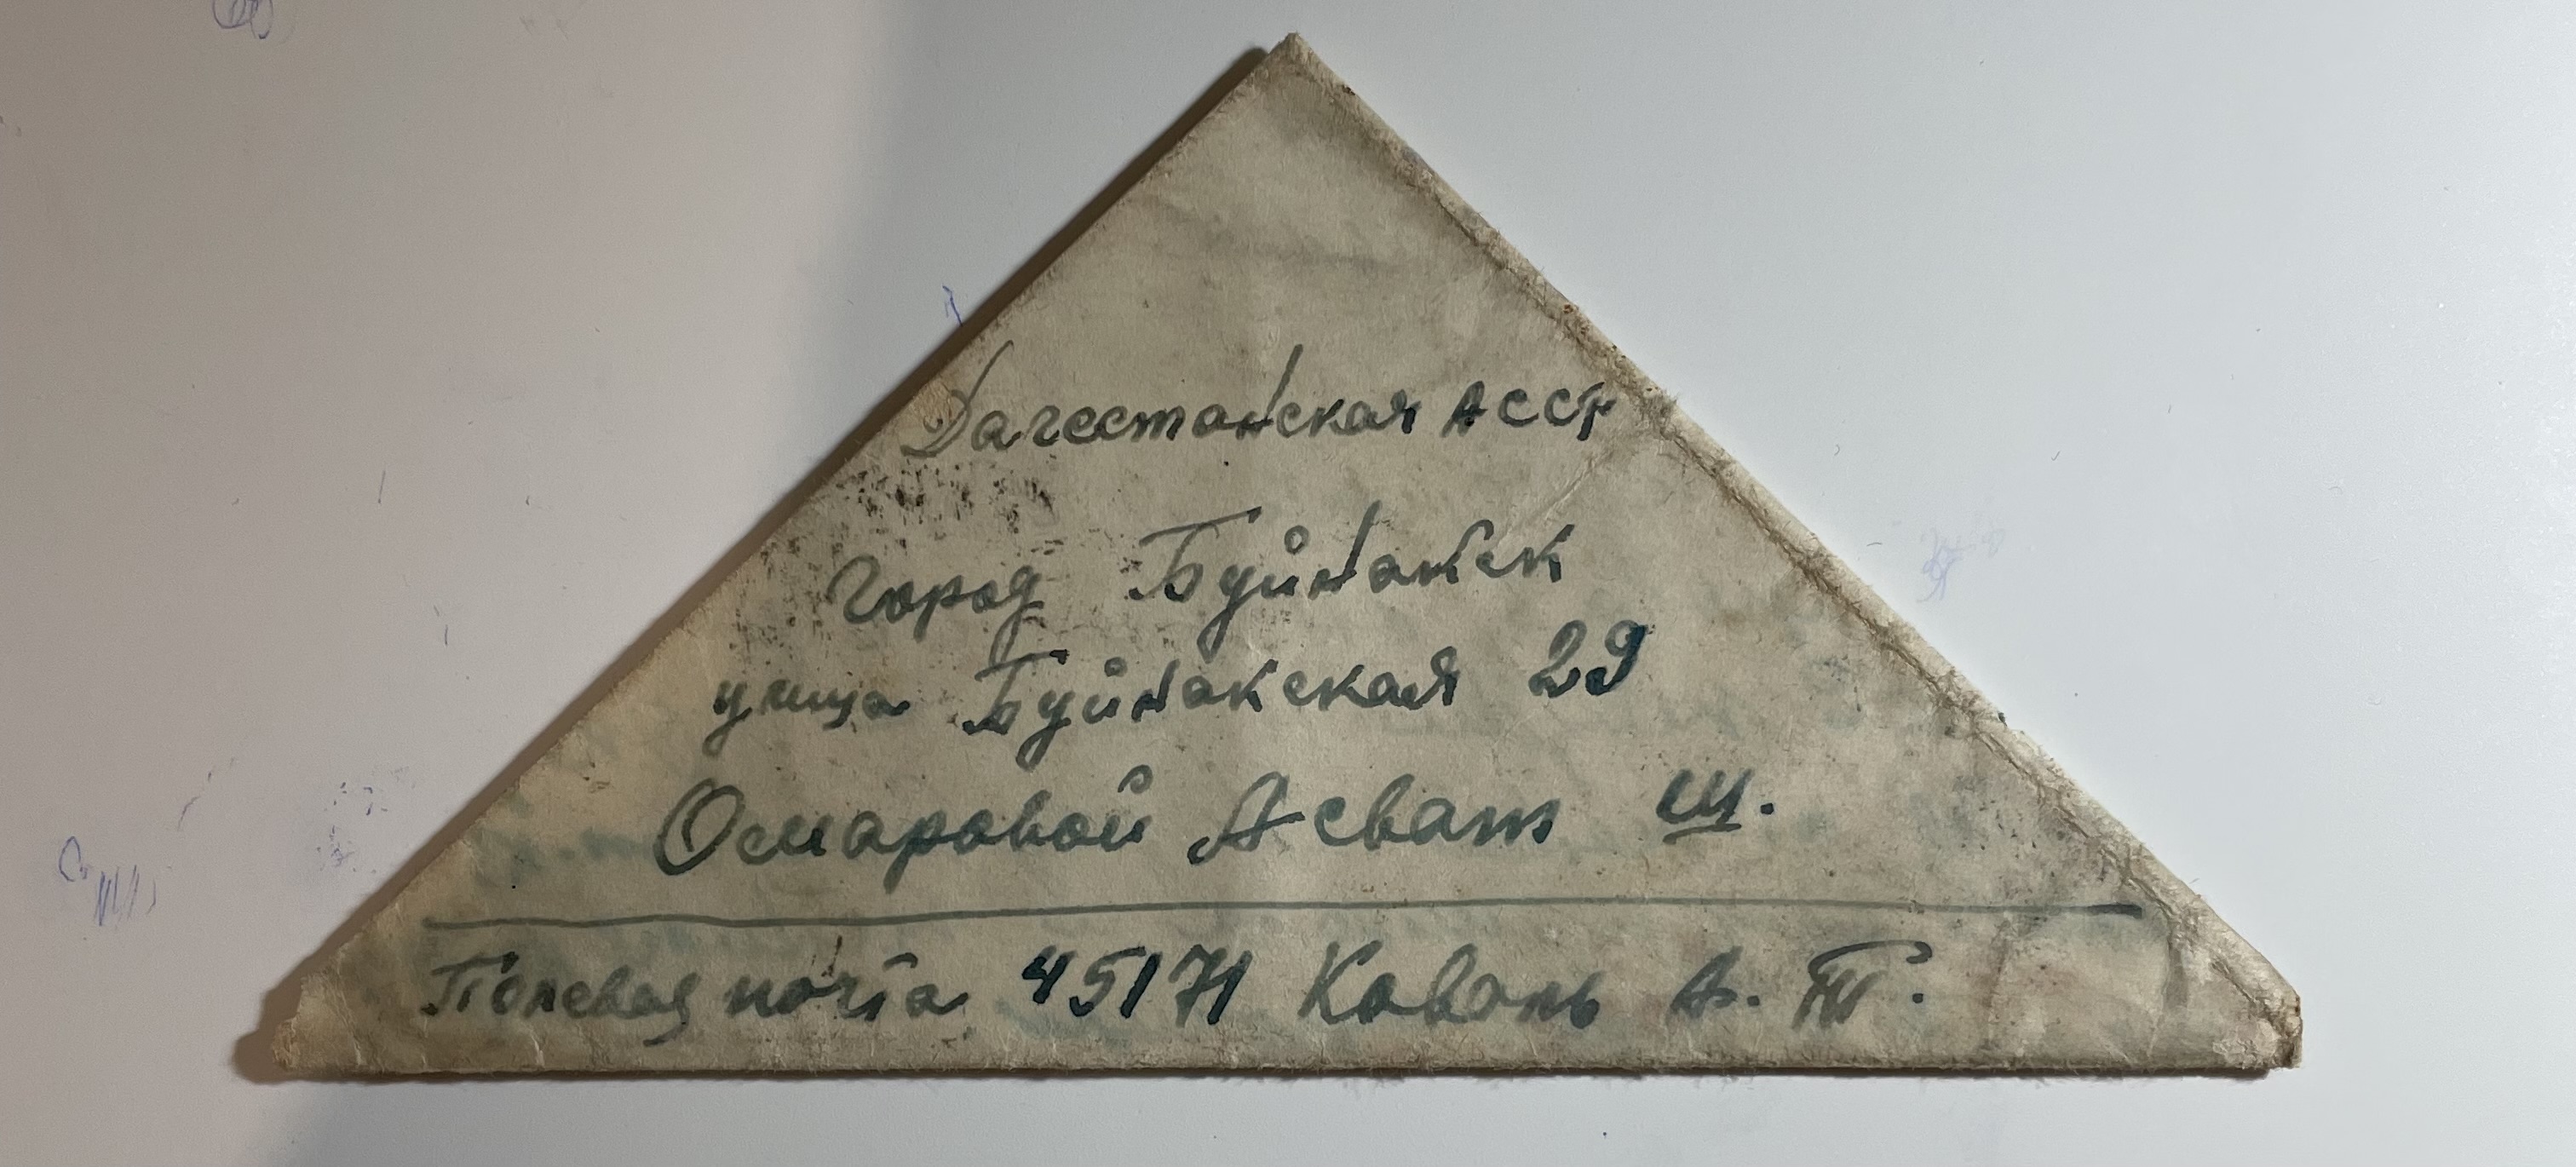 Дагестанская АССР
город Буйнакск
улица Буйнакская 29
Омаровой Асват Ш.
Полевая почта 45171 Коваль А. Т.